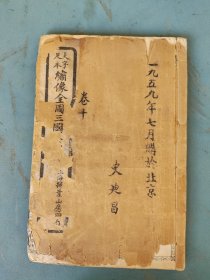 一九五九年七月購於北京
史兆昌
卷十
大字足本
繡像全圖三國
上海掃葉山房